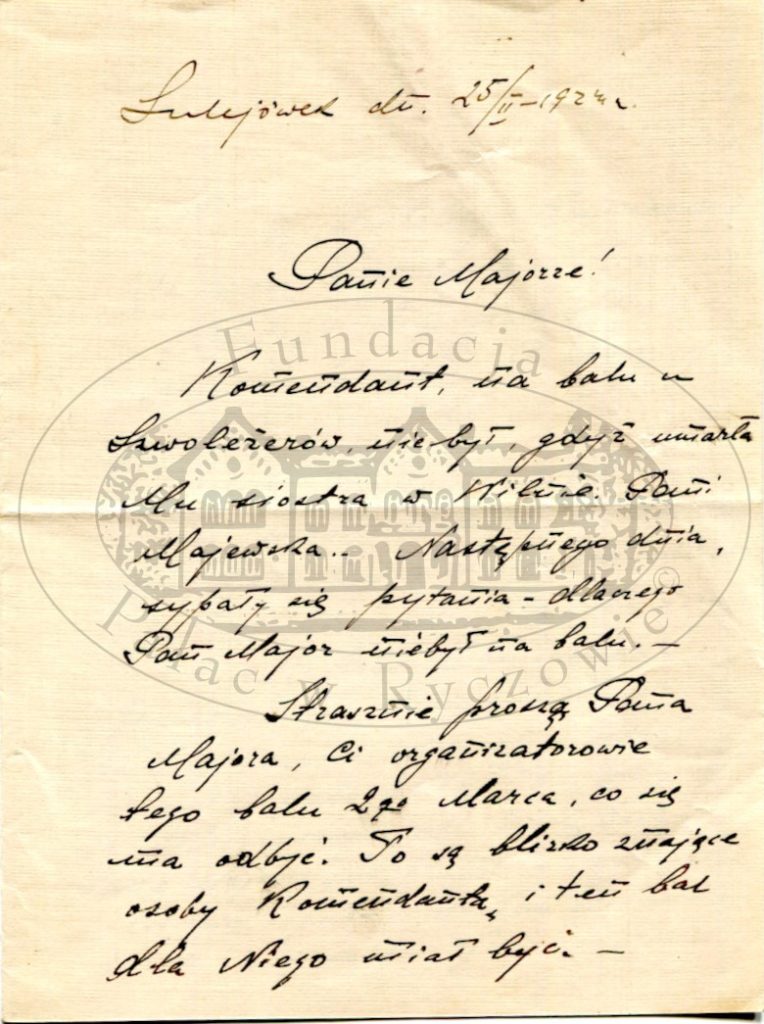 Sulejówek dn. 25/II-192 r.
Panie Majorze!
Komendant, na balu u
Szwoleżerów, niebył, gdyż umarła
Mu siostra w Wilnie. Pani
Majewska.. Następnego dnia,
sypały się pytania - dlaczego
Pan Major niebył na balu. -
Strasznie proszą Pana
Majora, Ci organizatorowie
tego balu 2go Marca, co się
ma odbyć. To są blizko znające
osoby Komendanta, i ten bal
dla Niego miał być. -
Fundacja
Pałac w Ryczowie ©